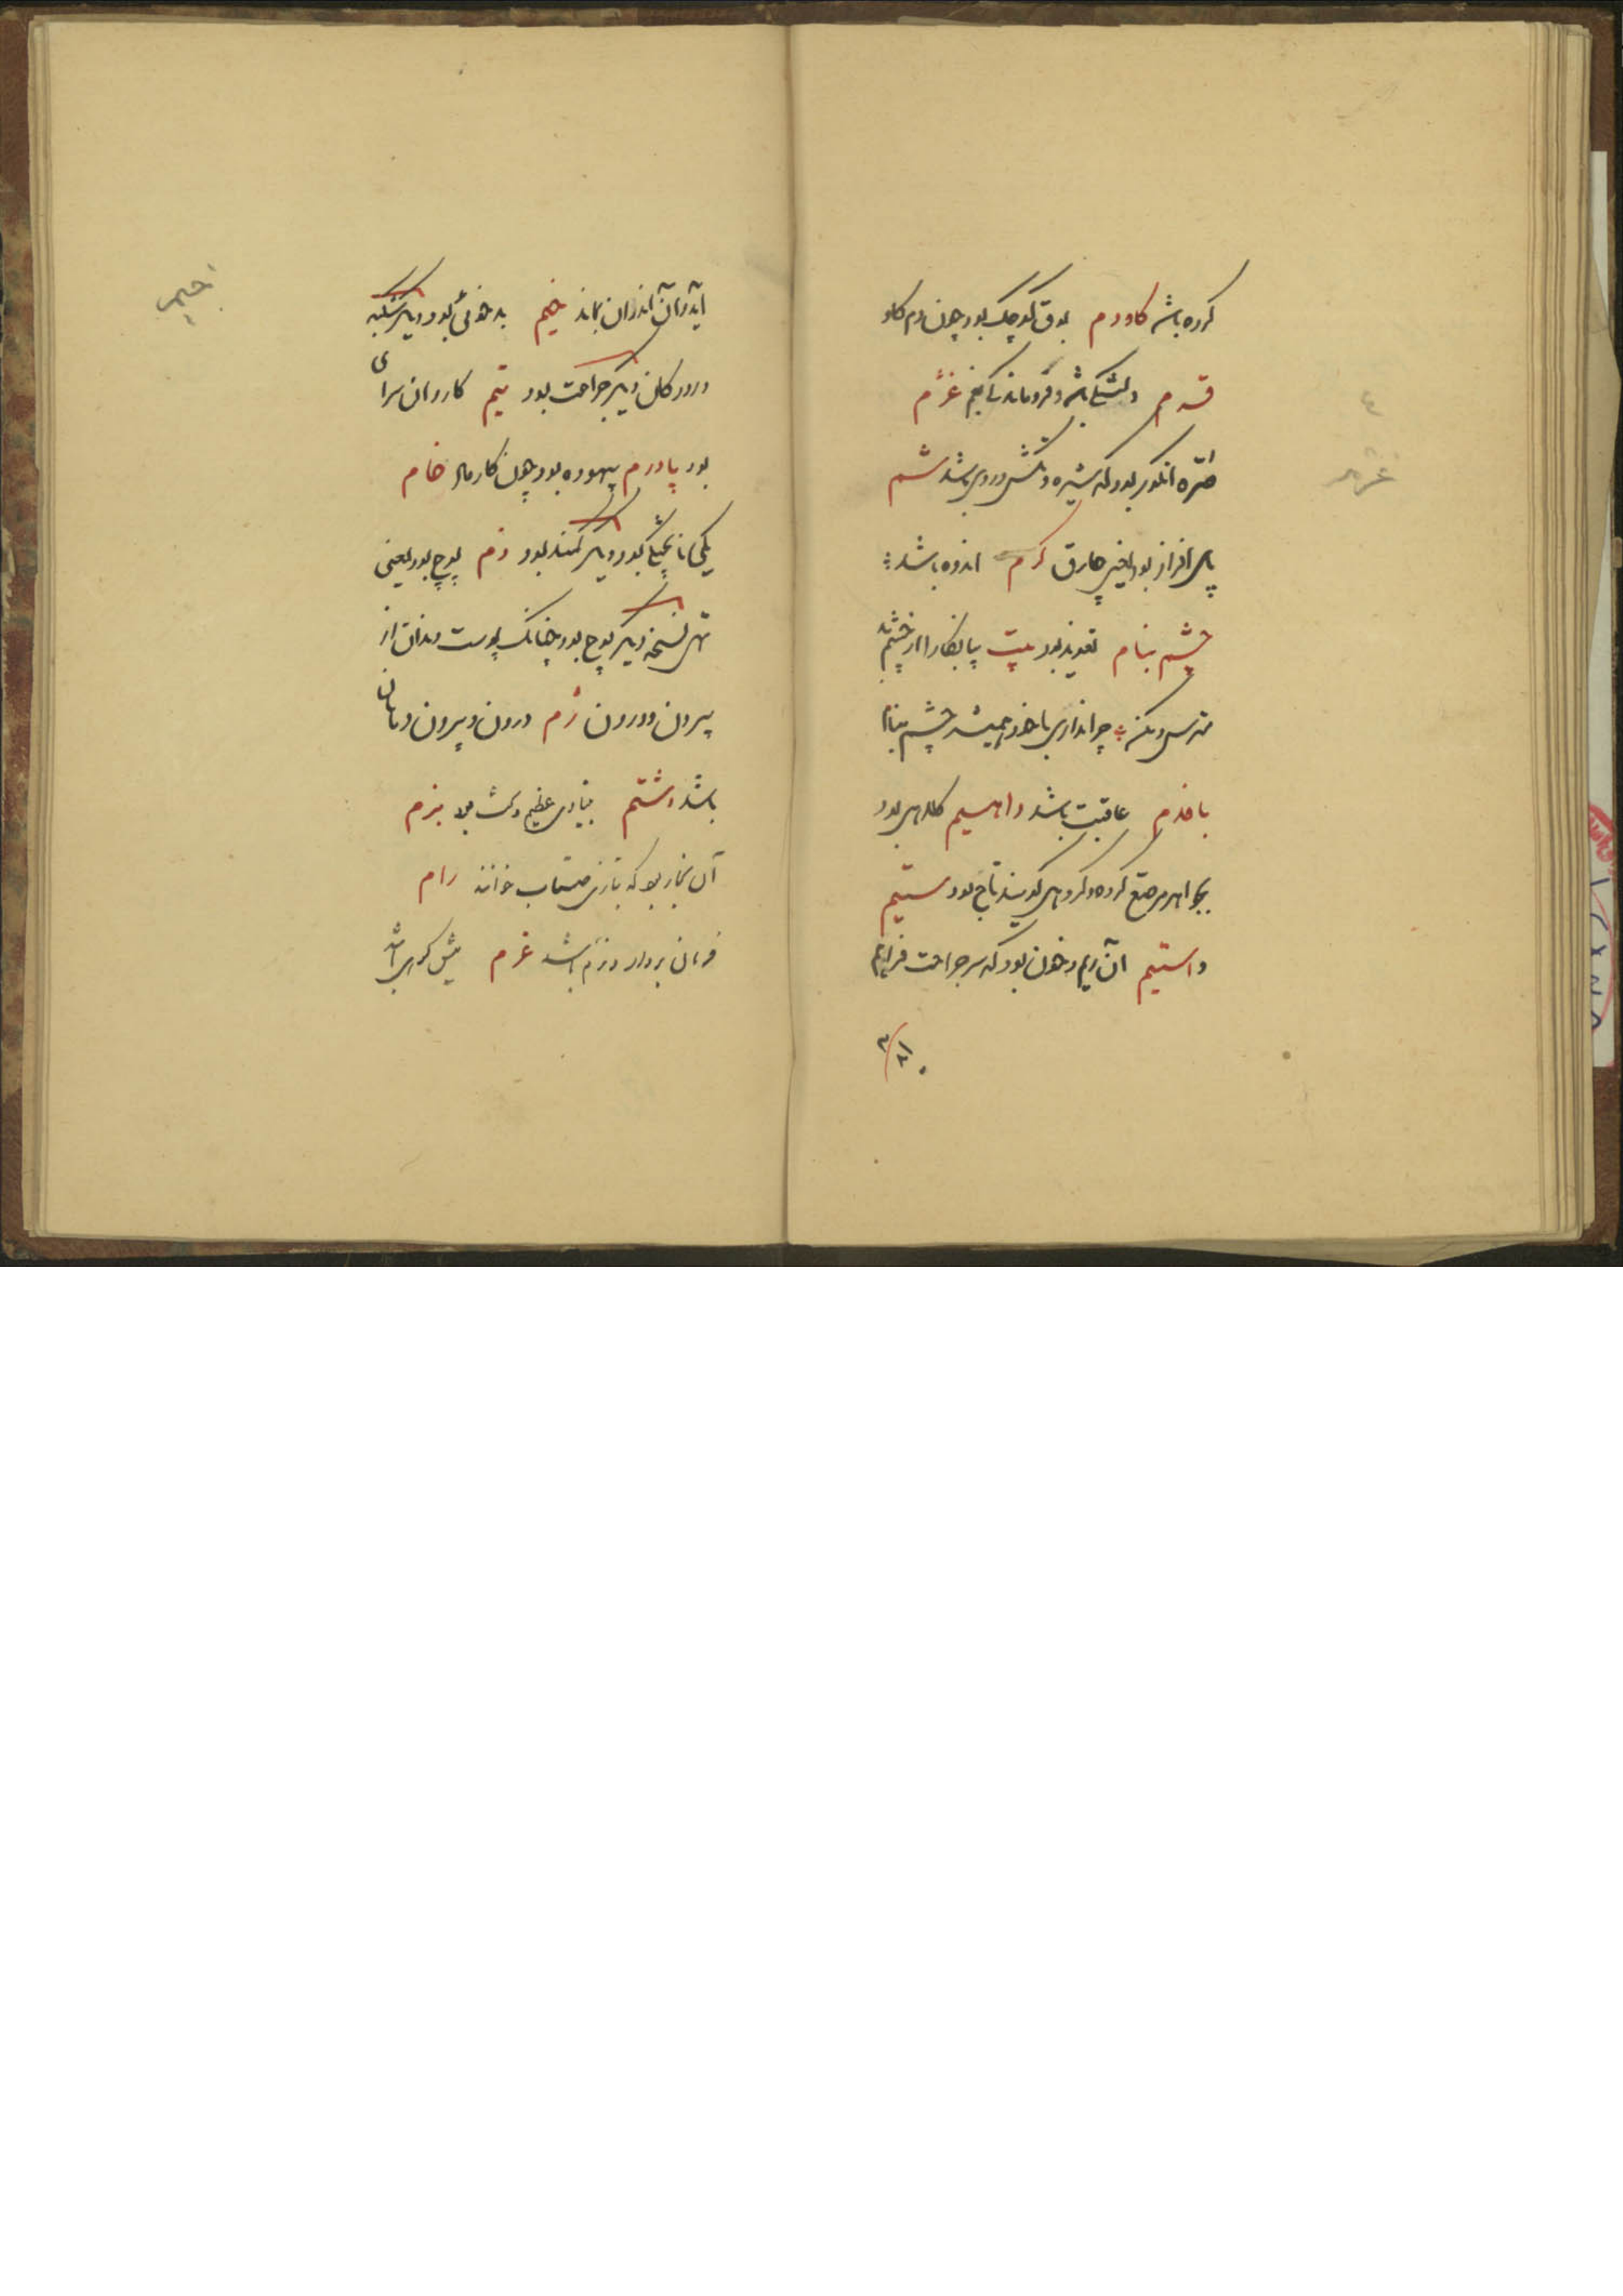 کرده باشد کاودم بوق کوچک بود چون دم کاو
فدم دلتنک باشد و فرومانده بغم غژم
دانه انکور بود که شیره و تکش در وی باشد شم
پای افزار بود یعنی چارق کرم اندوه باشد
چشم بنام تعویذ بود بیت پا بنکارا از چشم بد
مترس و مکن چرا نداری با خود همیشه چشم بنام
بافدم عاقبت باشد داهیم کلاهی بود
بجواهر مرصع کرده و کروهی کویند تاج بود ستیم
و استیم آن ریم و خون بود که سر جراحت فراهم
آید و آن اندر آن بماند خیم بدخوئی بود و دیکر شکنبه
و رودکان و دیکر جراحت بود تیم کاروان سرای
بود پادرم بیهوده بود چون کار خام
یکی ناپخته بود و دیکر کمند بود رم پوچ بود یعنی
تهی نسخه دیکر پوچ بود چنانک پوست دندان از
بیرون و درون زم درون و بیرون دهان
باشد دشتم بنیادی عظیم بود بزم
آن بخار بود که بتازی ضباب خوانند رام
فرمان بردار و نرم باشد غرم میش کوهی باشد
خیم